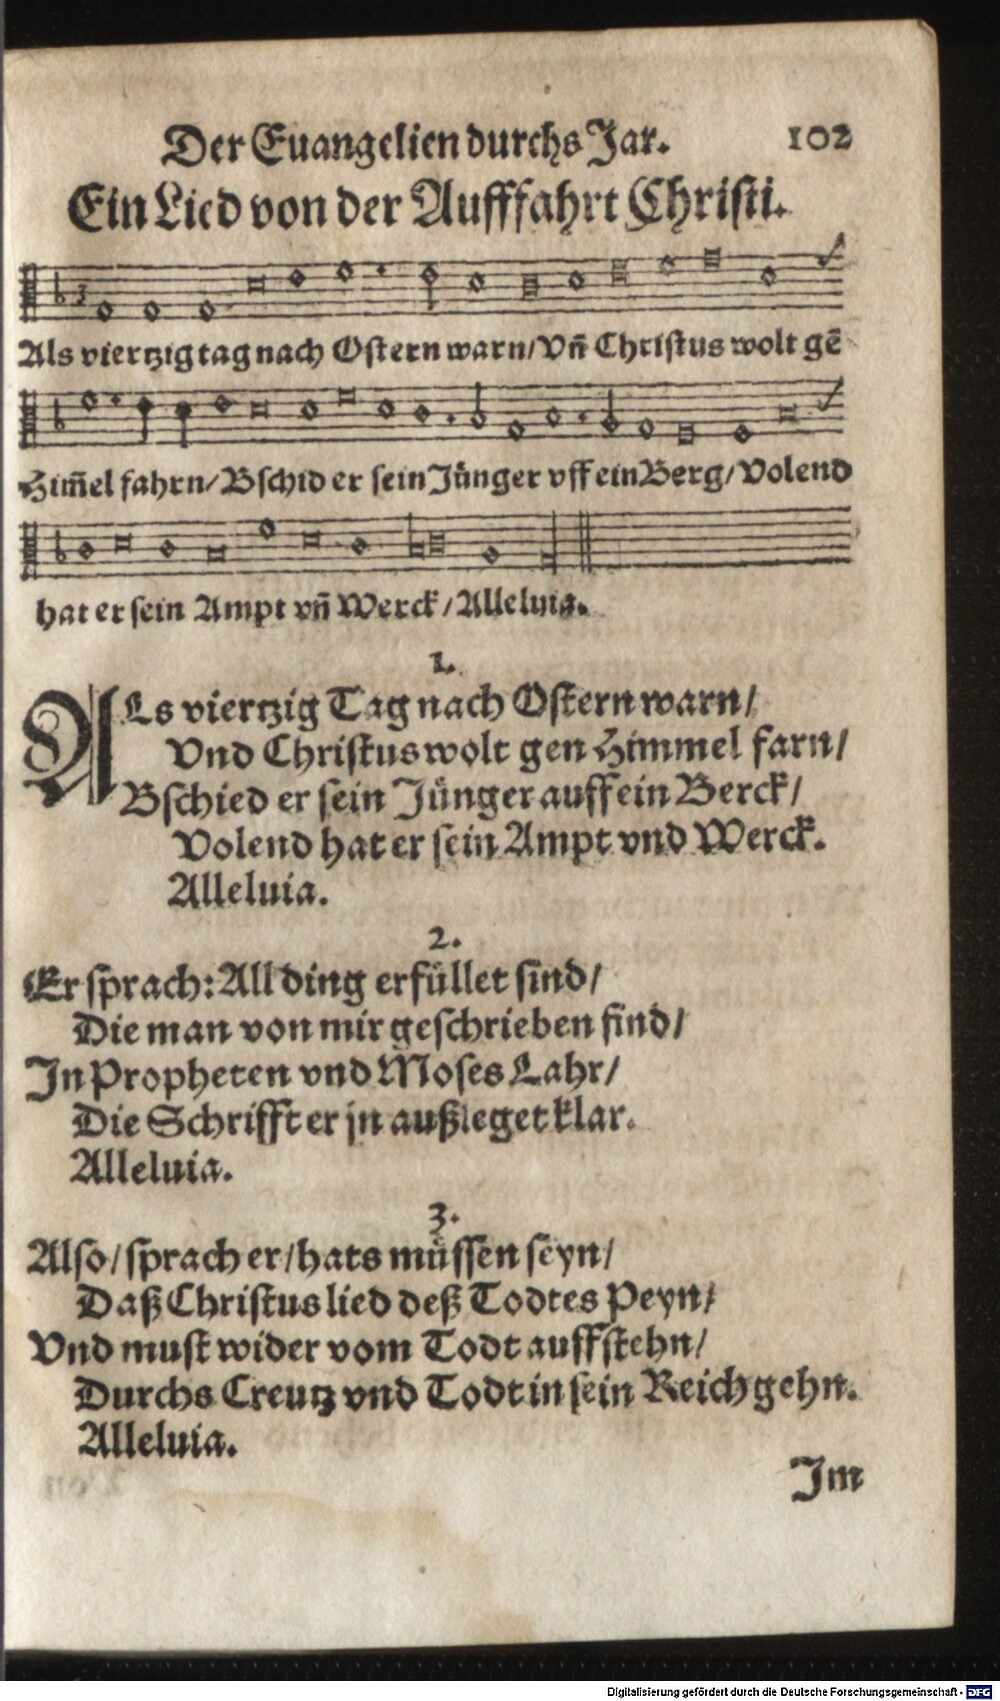 Der Euangelien durchs Jar. 102
Ein Lied von der Aufffahrt Christi.
Als viertzig tag nach Ostern warn/ Vñ Christus wolt gẽ
Him̃el fahrn/ Bschid er sein Jünger vff ein Berg/ Volend
hat er sein Ampt vñ Werck/ Alleluia.
1.
ALs viertzig Tag nach Ostern warn/
Vnd Christus wolt gen Himmel farn/
Bschied er sein Jünger auff ein Berck/
Volend hat er sein Ampt vnd Werck.
Alleluia.
2.
Er sprach: All ding erfüllet sind/
Die man von mir geschrieben find/
In Propheten vnd Moses Lahr/
Die Schrifft er jn außleget klar.
Alleluia.
3.
Also/ sprach er/ hats müssen seyn/
Daß Christus lied deß Todtes Peyn/
Vnd must wider vom Todt auffstehn/
Durchs Creutz vnd Todt in sein Reich gehn.
Alleluia.
Im
Digitalisierung gefördert durch die Deutsche Forschungsgemeinschaft - DFG